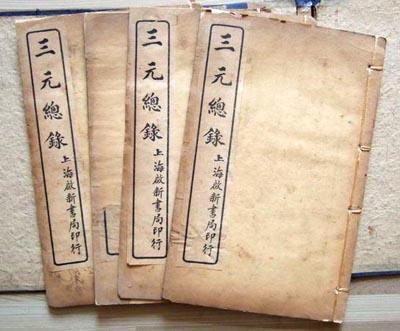 三元總錄 上海啟新書局印行
三元總錄 上海啟新書局印行
三元總錄 上海啟新書局印行